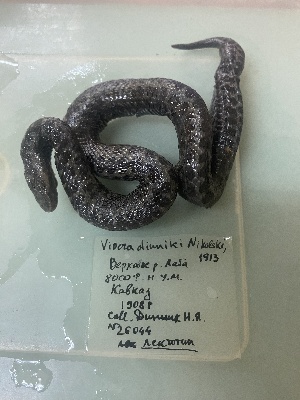 Vipera dinniki Nikolski,
1913
Верховье р. Лаба
8000 ф. н. у. м.
Кавказ
1908 г
Coll. Динник Н.Я.
№ 26044
лектотип